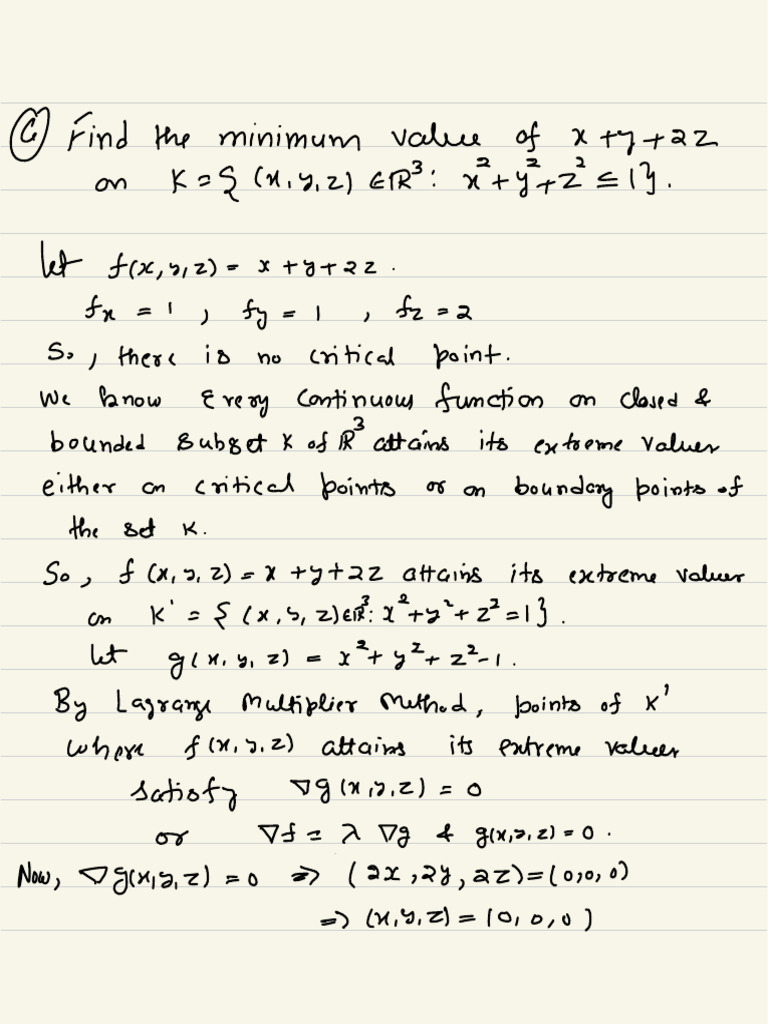 (G) Find the minimum value of x+y+2z
on K = { (x, y, z) ∈ ℝ³ : x² + y² + z² ≤ 1 }.
Let f(x, y, z) = x + y + 2z .
fx = 1 , fy = 1 , fz = 2
So, there is no critical point.
We know Every continuous function on closed &
bounded subset K of ℝ³ attains its extreme values
either on critical points or on boundary points of
the set K.
So, f (x, y, z) = x + y + 2z attains its extreme values
on K' = { (x, y, z) ∈ ℝ³ : x² + y² + z² = 1 } .
Let g(x, y, z) = x² + y² + z² - 1 .
By Lagrange Multiplier Method, points of K'
where f(x, y, z) attains its extreme values
satisfy ∇g(x, y, z) = 0
or ∇f = λ ∇g & g(x, y, z) = 0 .
Now, ∇g(x, y, z) = 0 ⇒ (2x, 2y, 2z) = (0, 0, 0)
⇒ (x, y, z) = (0, 0, 0)